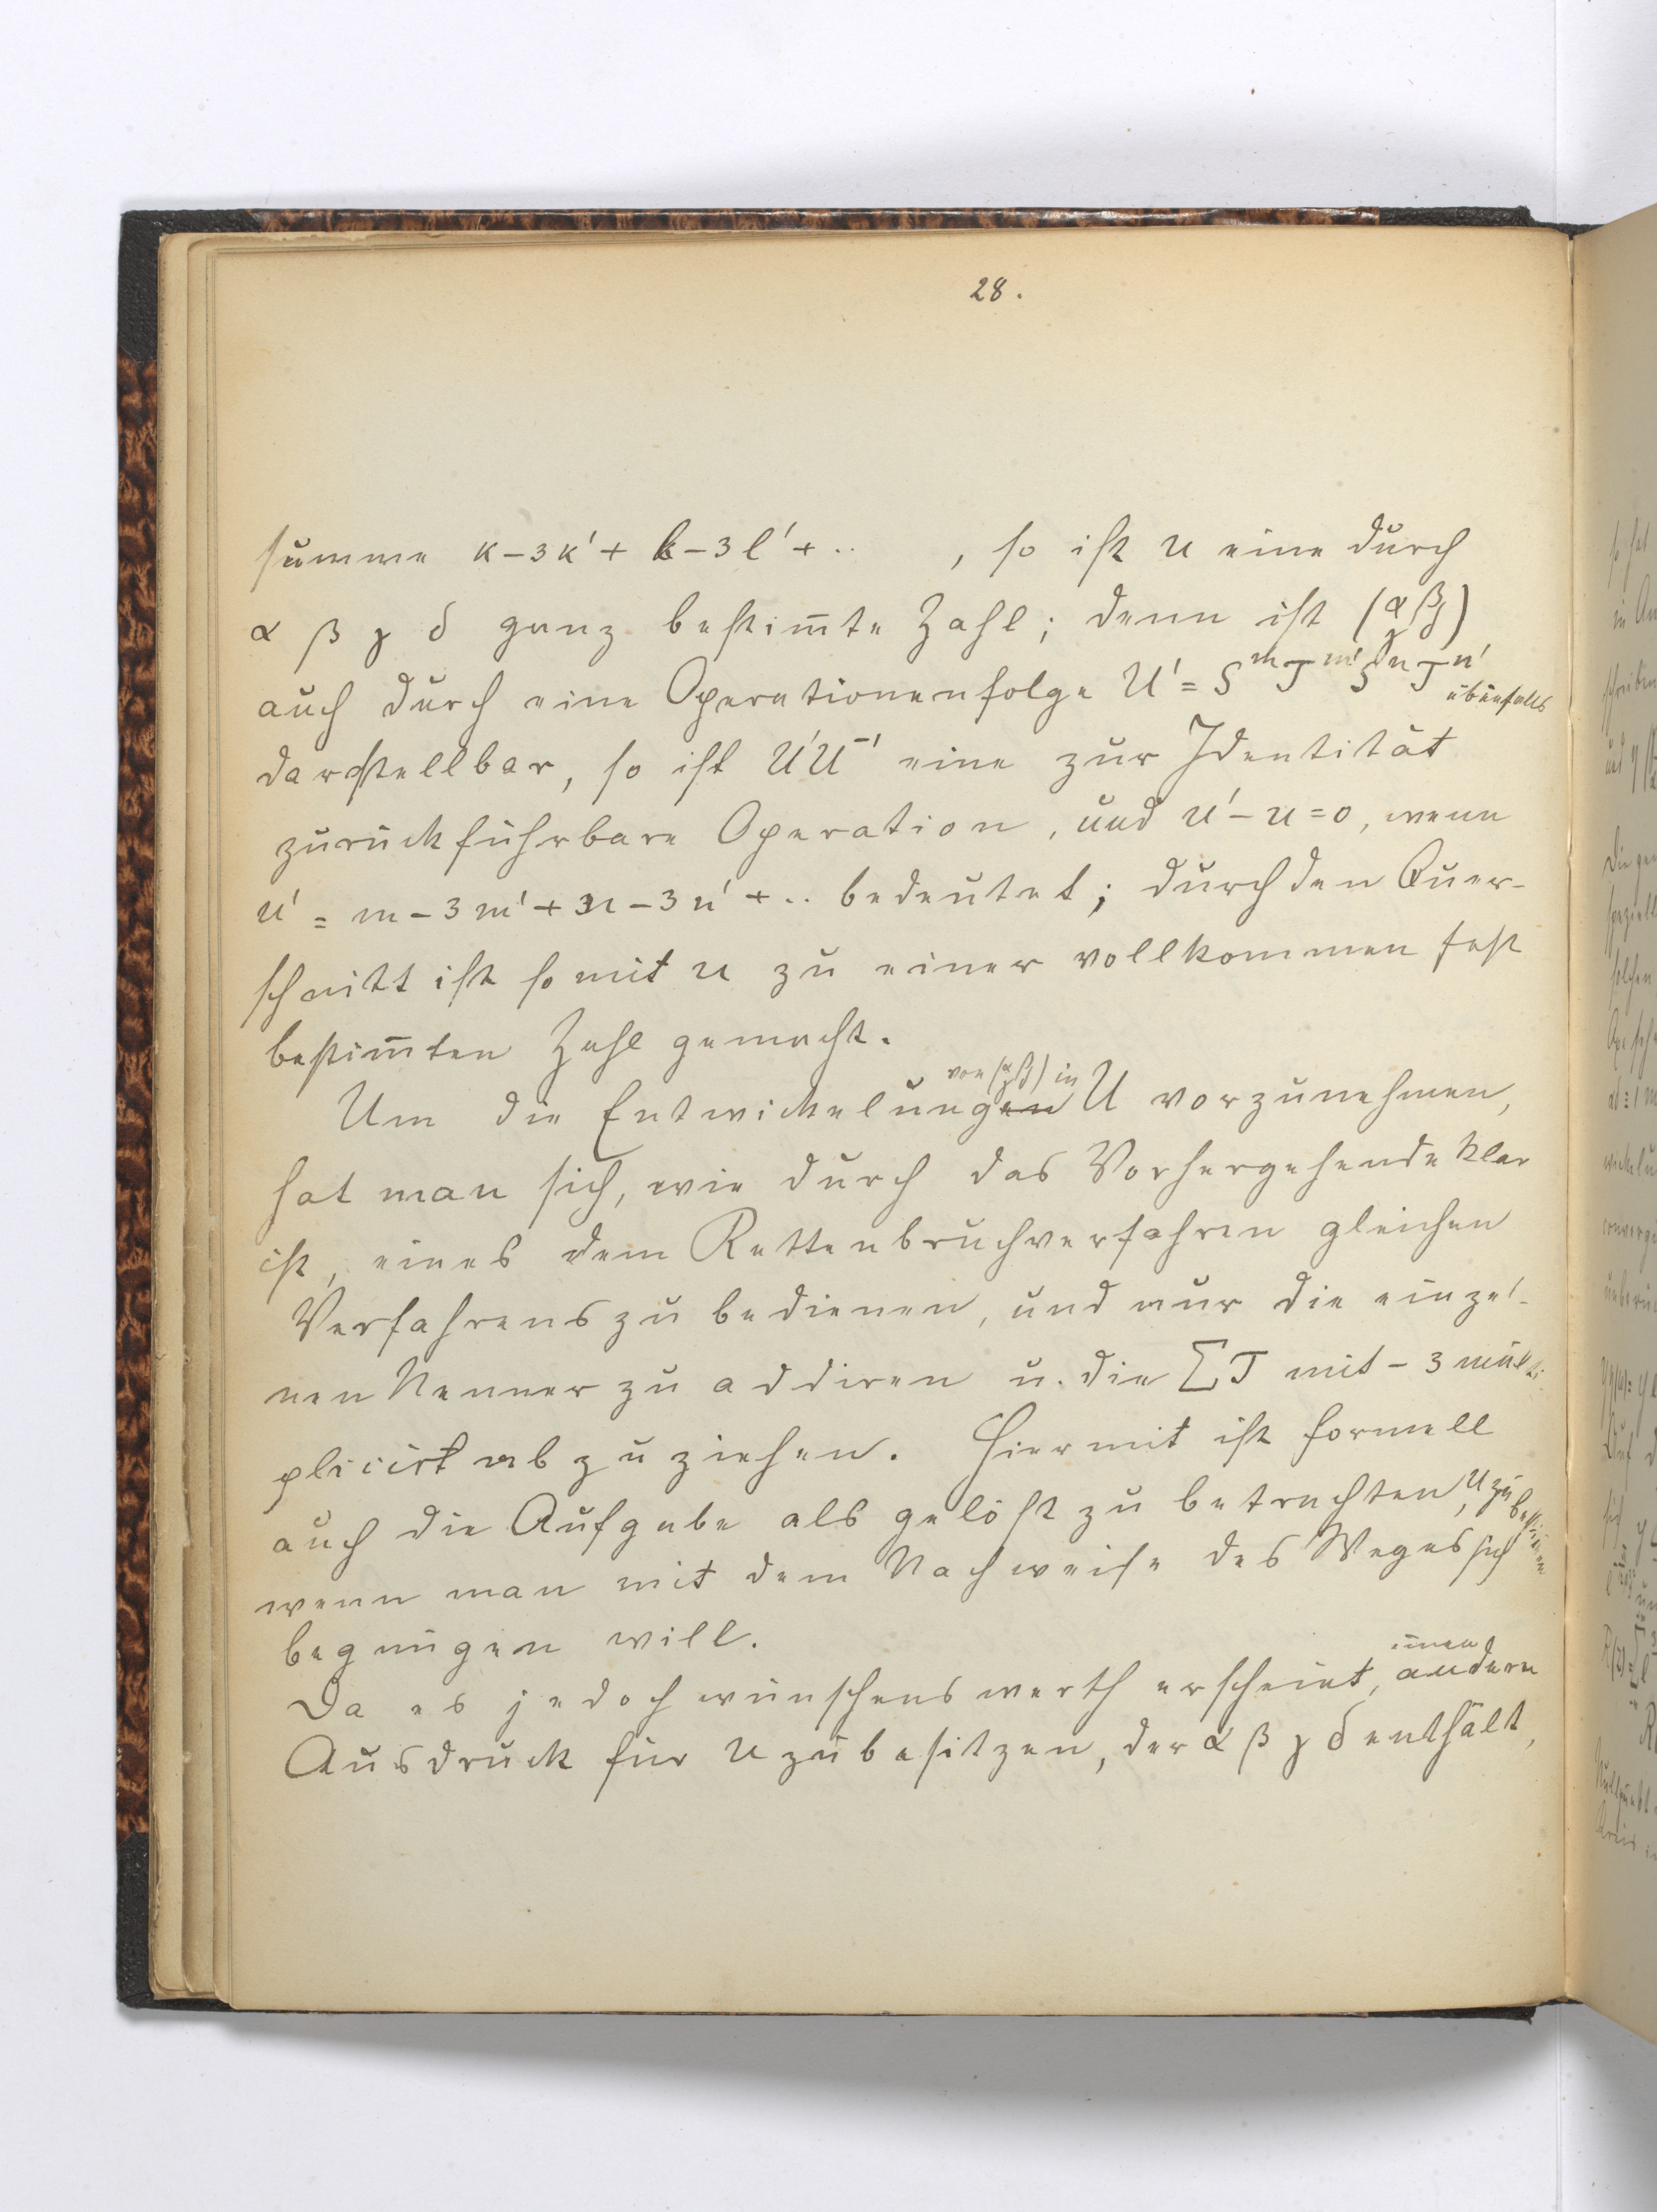 28.
summe k-3k'+ l-3l'+.. , so ist u eine durch
α β γ δ ganz bestim̄te Zahl; denn ist (α β γ δ)
auch durch eine Operationenfolge U' = S^m T^m' S^n T^n' ebenfalls
darstellbar, so ist U'U^-1 eine zur Identität
zurückführbare Operation, und u'-u=0, wenn
u' = m-3m'+n-3n'+.. bedeutet; durch den Quer-
schnitt ist somit u zu einer vollkommen fest
bestim̄ten Zahl gemacht.
Um die Entwickelung von (α β γ δ) in U vorzunehmen,
hat man sich, wie durch das Vorhergehende klar
ist, eines dem Kettenbruchverfahren gleichen
Verfahrens zu bedienen, und nur die einzel-
nen Nenner zu addiren u. die ΣT mit -3 multi-
plicirt abzuziehen. Hiermit ist formell
auch die Aufgabe als gelöst zu betrachten, u zu bestim̄en
wenn man mit dem Nachweise des Weges sich
begnügen will.
Da es jedoch wünschenswerth erscheint, einen andern
Ausdruck für u zu besitzen, der α β γ δ enthält,